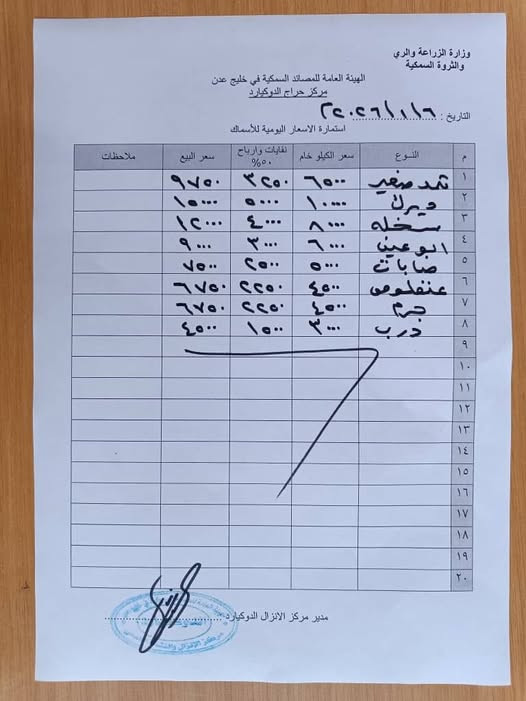 وزارة الزراعة والري
والثروة السمكية
الهيئة العامة للمصائد السمكية في خليج عدن
مركز حراج الدوكيارد
التاريخ : ٢٠٢٦/١/٦م
استمارة الاسعار اليومية للأسماك
م النوع سعر الكيلو خام نفايات وارباح ٥٠% سعر البيع ملاحظات
١ ثمد صغير ٦٥٠٠ ٣٢٥٠ ٩٧٥٠
٢ ديرك ١٠٠٠٠ ٥٠٠٠ ١٥٠٠٠
٣ سخله ٨٠٠٠ ٤٠٠٠ ١٢٠٠٠
٤ ابو عين ٦٠٠٠ ٣٠٠٠ ٩٠٠٠
٥ صابات ٥٠٠٠ ٢٥٠٠ ٧٥٠٠
٦ عنفلوص ٤٥٠٠ ٢٢٥٠ ٦٧٥٠
٧ جرم ٤٥٠٠ ٢٢٥٠ ٦٧٥٠
٨ درب ٣٠٠٠ ١٥٠٠ ٤٥٠٠
٩
١٠
١١
١٢
١٣
١٤
١٥
١٦
١٧
١٨
١٩
٢٠
مدير مركز الانزال الدوكيارد
مركز الإنزال